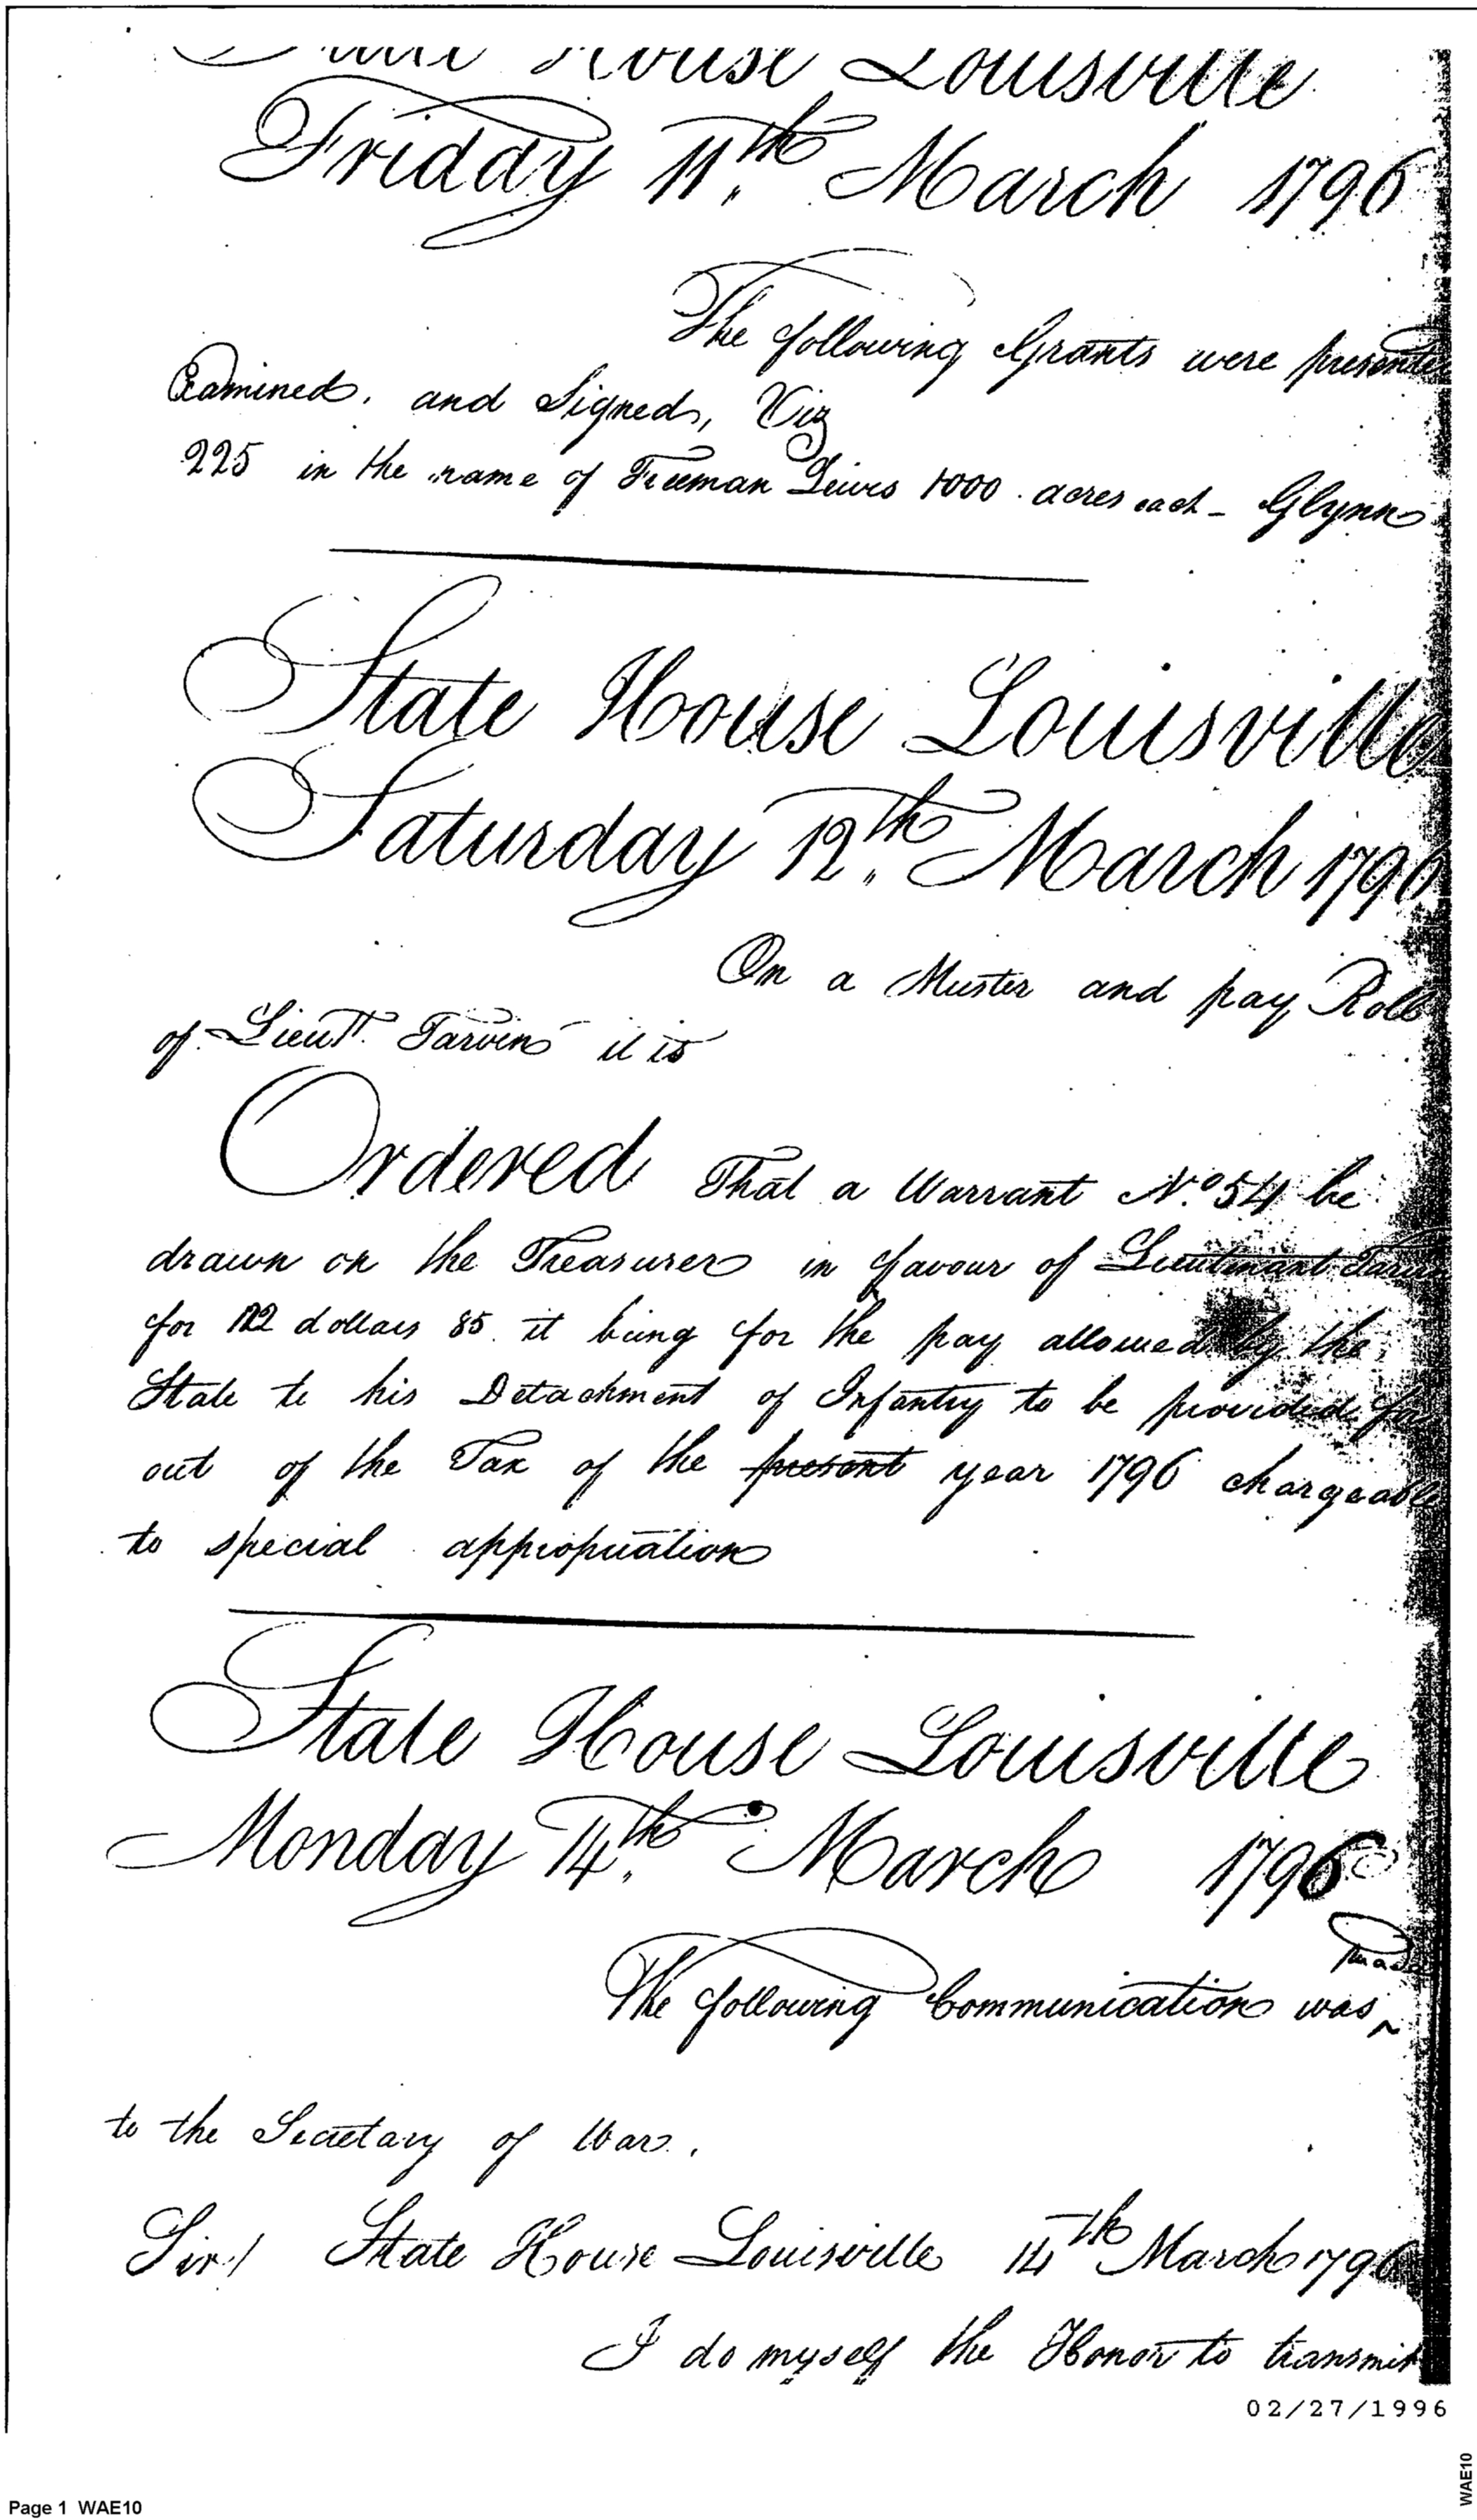 State House Louisville
Friday 11th March 1796
The following Grants were presented
Examined, and Signed, Viz
225 in the name of Freeman Lewis 1000 acres each - Glynn
State House Louisville
Saturday 12th March 1796
On a Muster and pay Roll
of Lieut. Tarvin it is
Ordered That a Warrant No. 54 be
drawn on the Treasurer in favour of Lieutenant Tarvin
for 122 dollars 85 it being for the pay allowed by the
State to his Detachment of Infantry to be provided for
out of the Tax of the present year 1796 chargeable
to special appropriation
State House Louisville
Monday 14th March 1796
made
The following Communication was
to the Secretary of War.
Sir/ State House Louisville 14th March 1796
I do myself the Honor to transmit
02/27/1996
Page 1 WAE10
WAE10